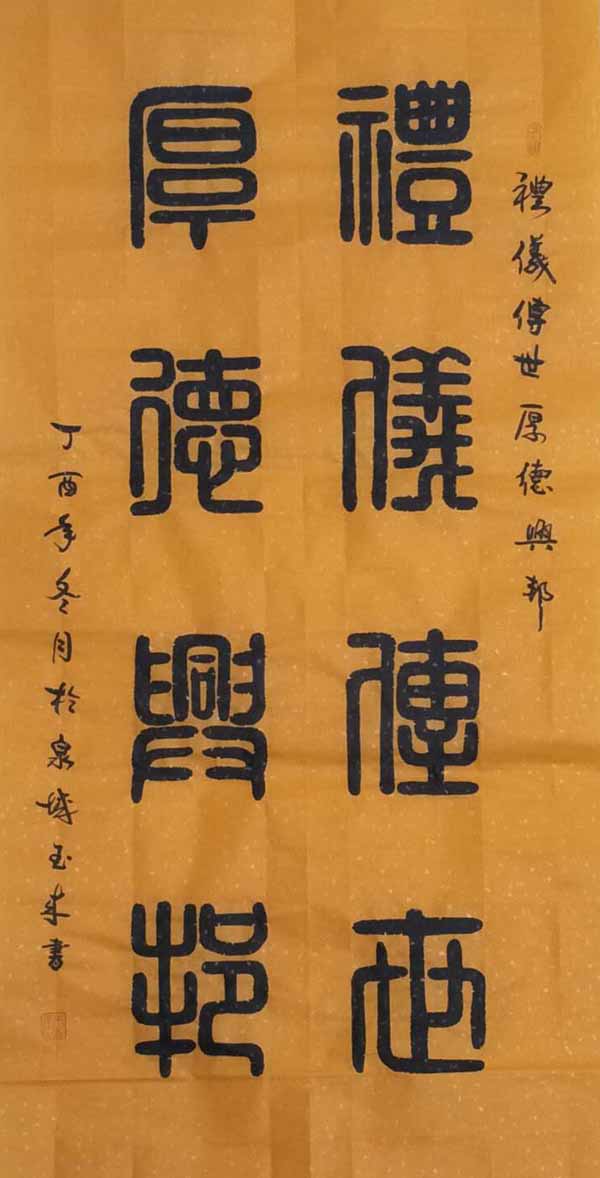 禮儀傳世厚德興邦
禮儀傳世
厚德興邦
丁酉年冬月於泉城玉来書